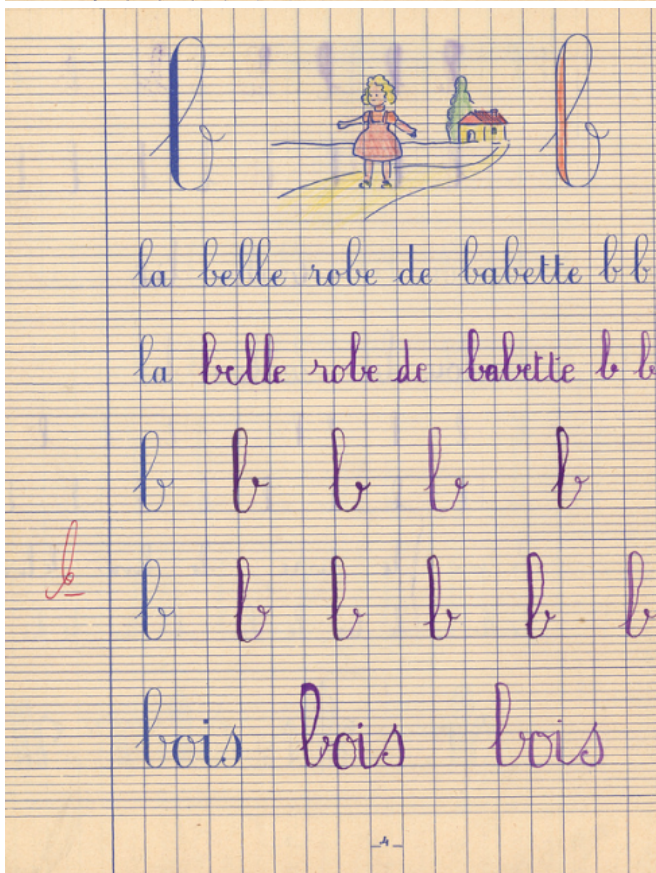 b b
la belle robe de babette b b
la belle robe de babette b b
b b b b b
b
b b b b b b
bois bois bois